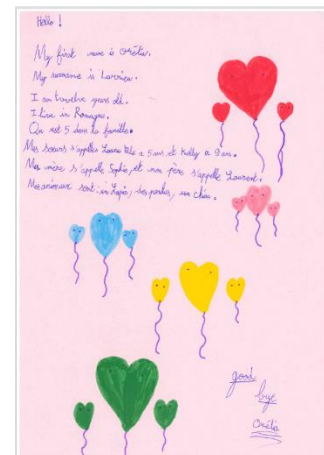 Hello !
My first name is Orétia.
My surname is Larrieu.
I am twelve years old.
I live in Romagne.
On est 5 dans la famille.
Mes soeurs s'appelles Louna elle a 5 ans et Kelly a 9 ans.
Ma mère s'appelle Sophie, et mon père s'appelle Laurent.
Mes animeux sont : un lapin, des perches, un chien.
good
bye
Orétia